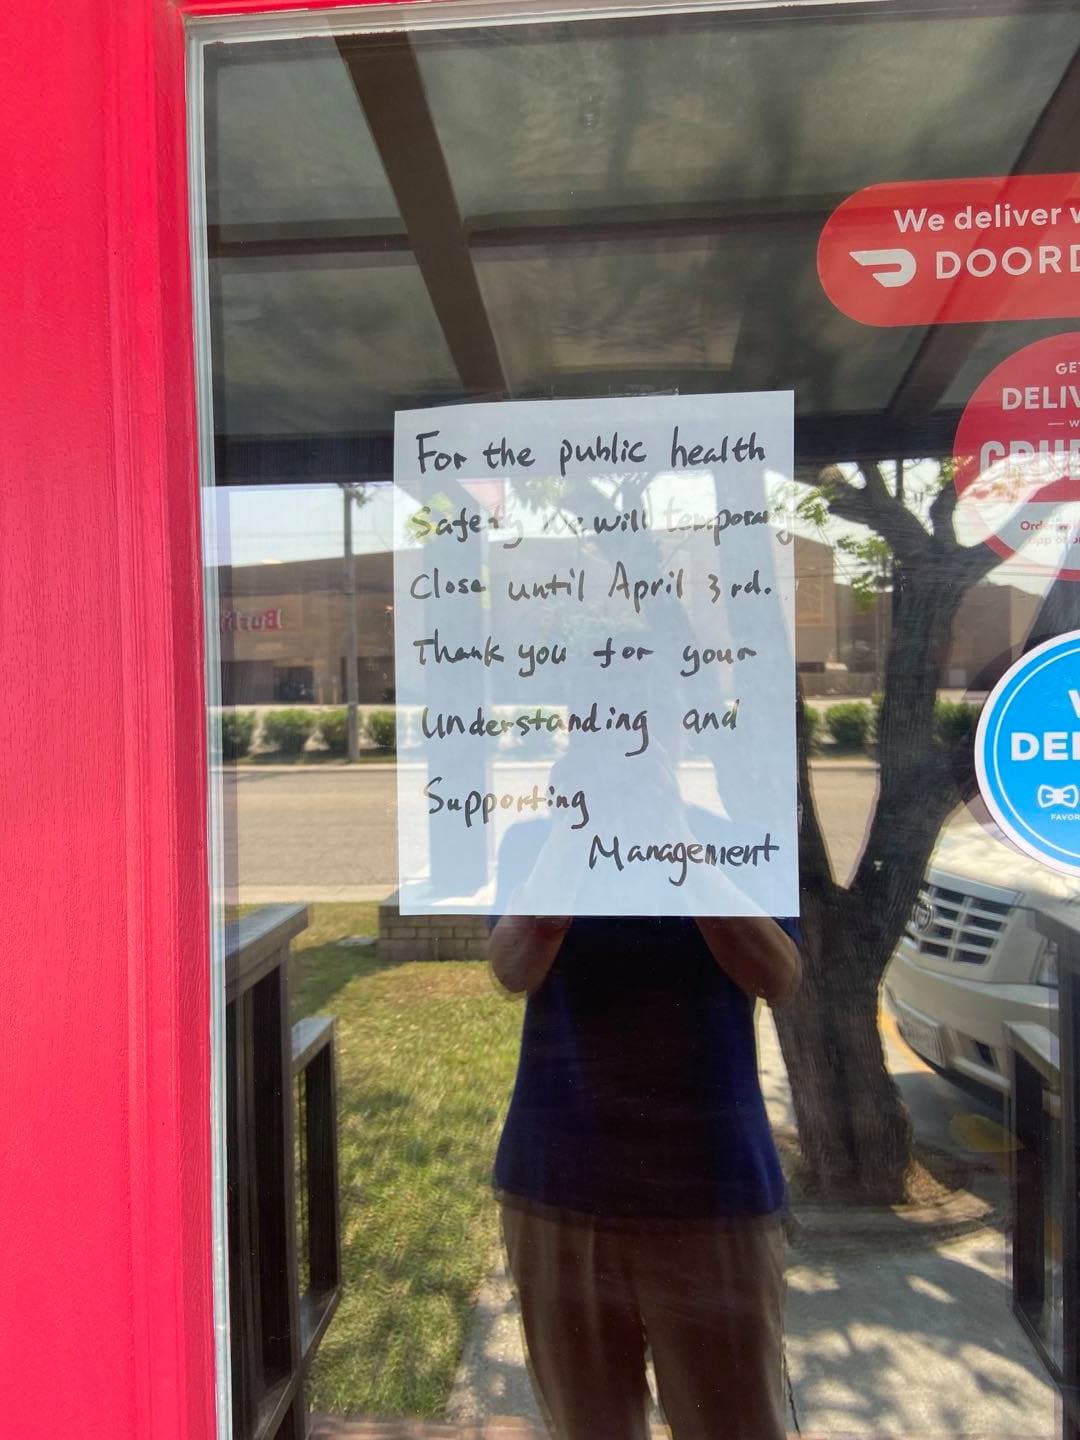 We deliver w
DOORD
GET
DELIV
W
GRU
For the public health
Safety we will temporary
Close until April 3rd.
Thank you for your
Understanding and
Supporting
Management
DEL
FAVOR